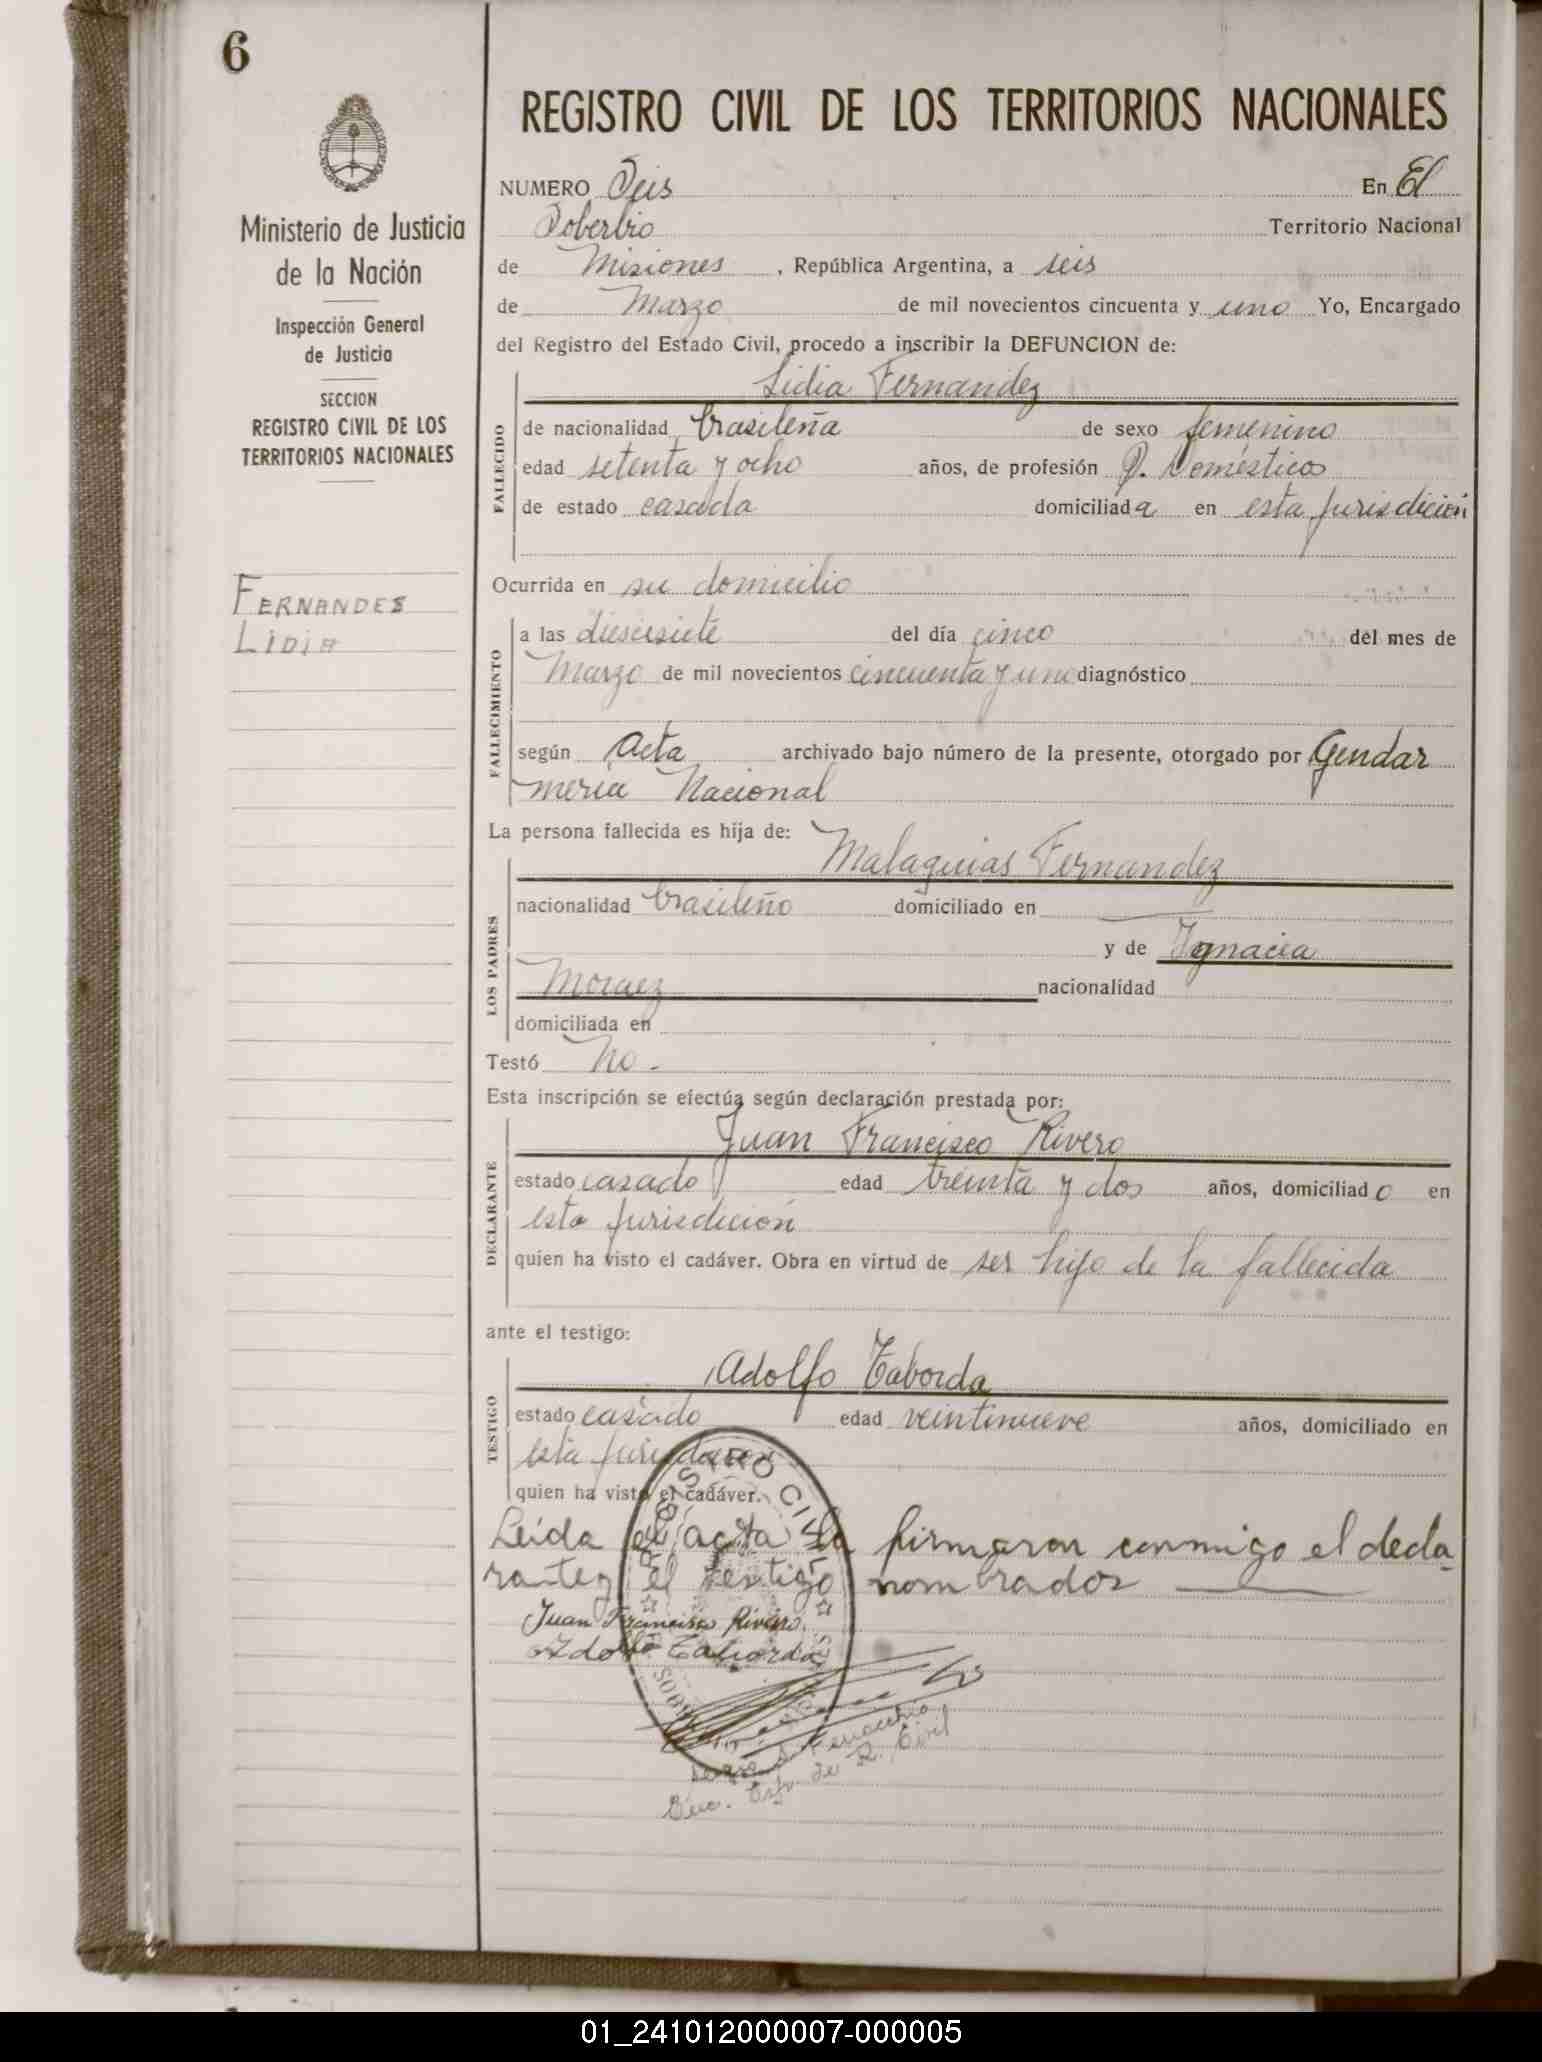 6
REGISTRO CIVIL DE LOS TERRITORIOS NACIONALES
Ministerio de Justicia
de la Nación
Inspección General
de Justicia
SECCION
REGISTRO CIVIL DE LOS
TERRITORIOS NACIONALES
FERNANDES
LIDIA
NUMERO Seis En El
Soberbio Territorio Nacional
de Misiones, República Argentina, a seis
de Marzo de mil novecientos cincuenta y uno Yo, Encargado
del Registro del Estado Civil, procedo a inscribir la DEFUNCION de:
FALLECIDO
Lidia Fernandez
de nacionalidad brasileña de sexo femenino
edad setenta y ocho años, de profesión Q. Domésticos
de estado casada domiciliada en esta jurisdición
Ocurrida en su domicilio
FALLECIMIENTO
a las diesisiete del día cinco del mes de
Marzo de mil novecientos cincuenta y uno diagnóstico
según Acta archivado bajo número de la presente, otorgado por Gendar
meria Nacional
La persona fallecida es hija de:
LOS PADRES
Malaquias Fernandez
nacionalidad brasileño domiciliado en
y de Ignacia
Moraez nacionalidad
domiciliada en
Testó No.
Esta inscripción se efectúa según declaración prestada por:
DECLARANTE
Juan Francisco Rivero
estado casado edad treinta y dos años, domiciliado en
esta jurisdición
quien ha visto el cadáver. Obra en virtud de ser hijo de la fallecida
ante el testigo:
TESTIGO
Adolfo Taborda
estado casado edad veintinueve años, domiciliado en
esta jurisdición
quien ha visto el cadáver.
Leida el acta la firmaron conmigo el decla-
rante y el testigo nombrados
Juan Francisco Rivero
Adolfo Taborda
REGISTRO CIVIL
Enc. de R. Civil
01_241012000007-000005